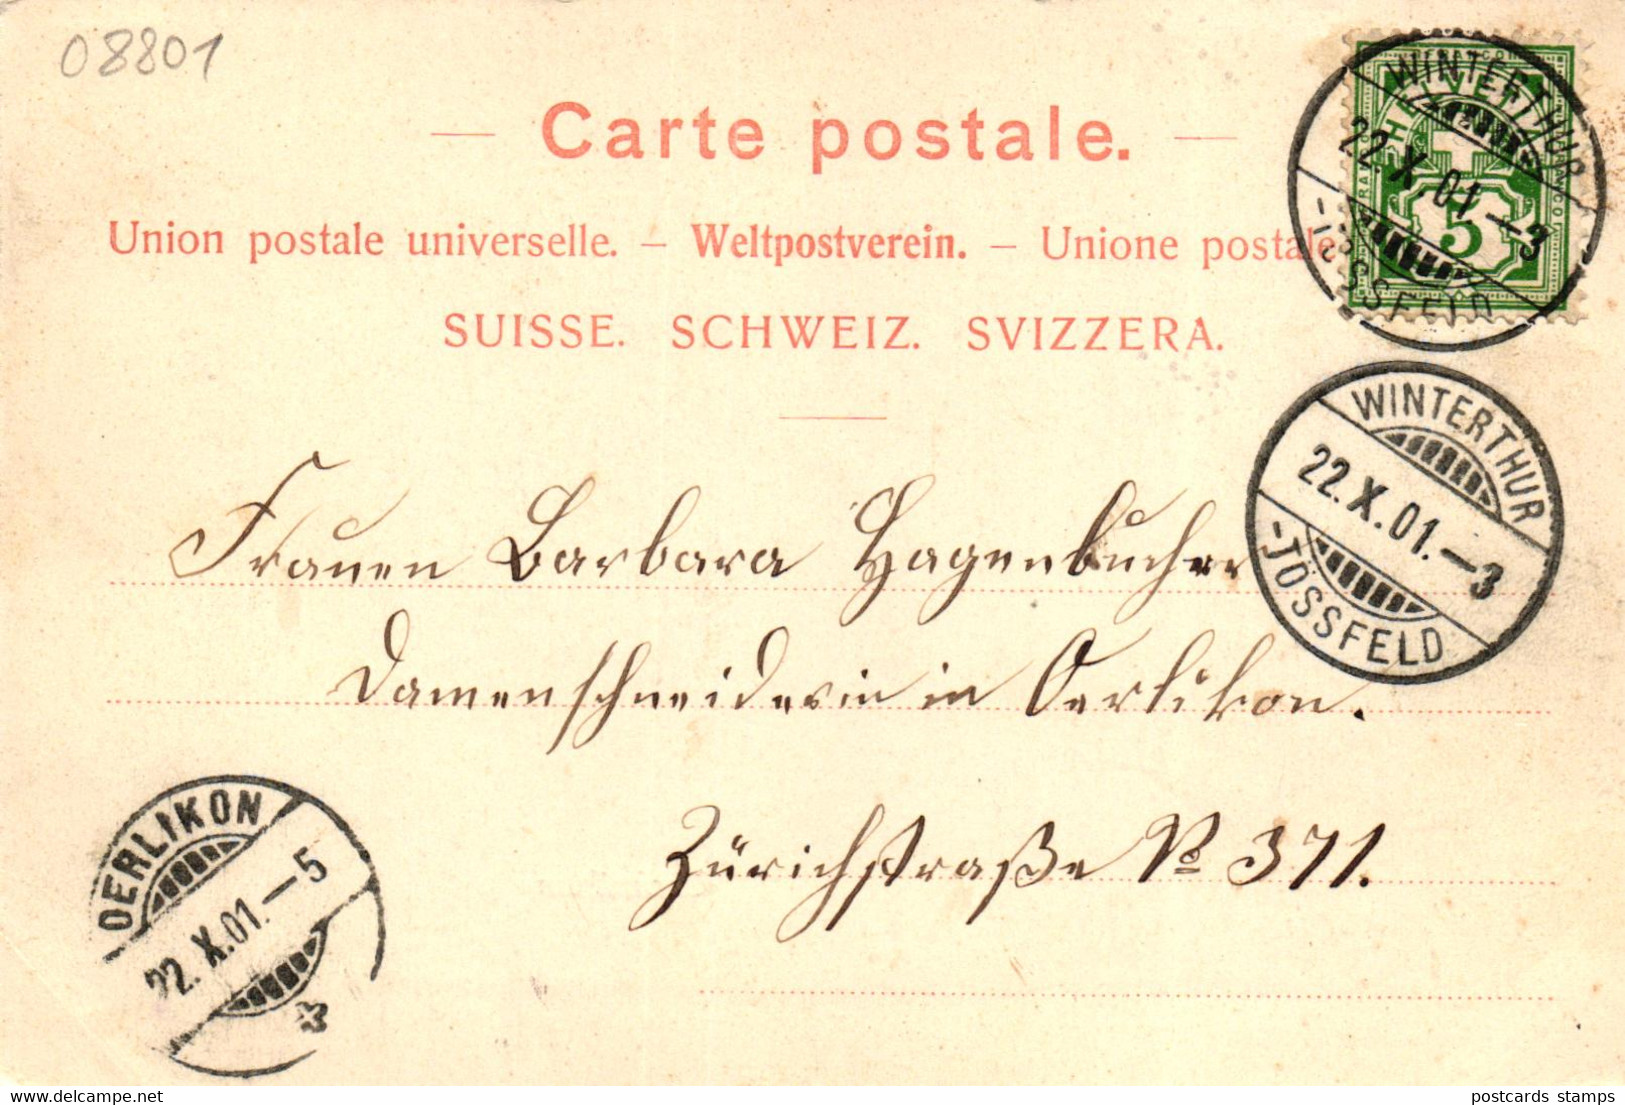 08801
— Carte postale. —
Union postale universelle. — Weltpostverein. — Unione postale
SUISSE. SCHWEIZ. SVIZZERA.
WINTERTHUR
22.X.01.–3
-TÖSSFELD
5
FRANCO
WINTERTHUR
22.X.01.–3
-TÖSSFELD
Frauen Barbara Hagenbucher
Damenschneiderin in Oerlikon.
Zürichstraße No 371.
OERLIKON
22.X.01.–5
postcards stamps